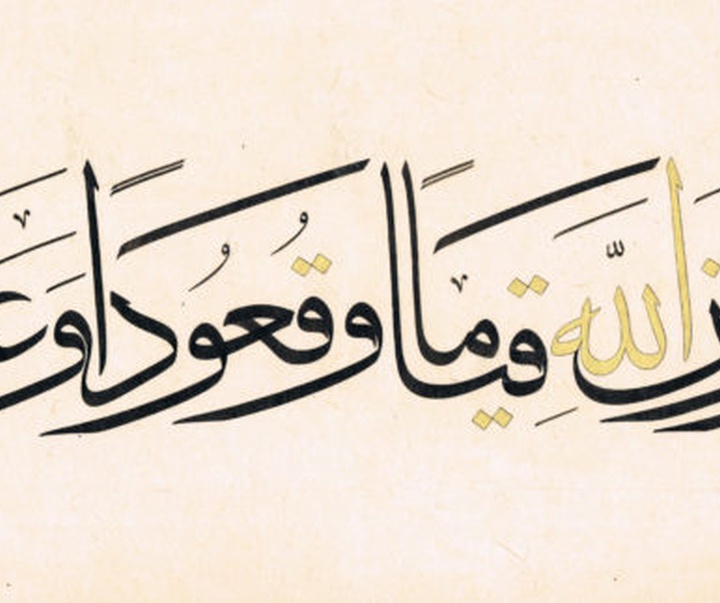 اللهَ قِيَامًا وَقُعُودًا وَ